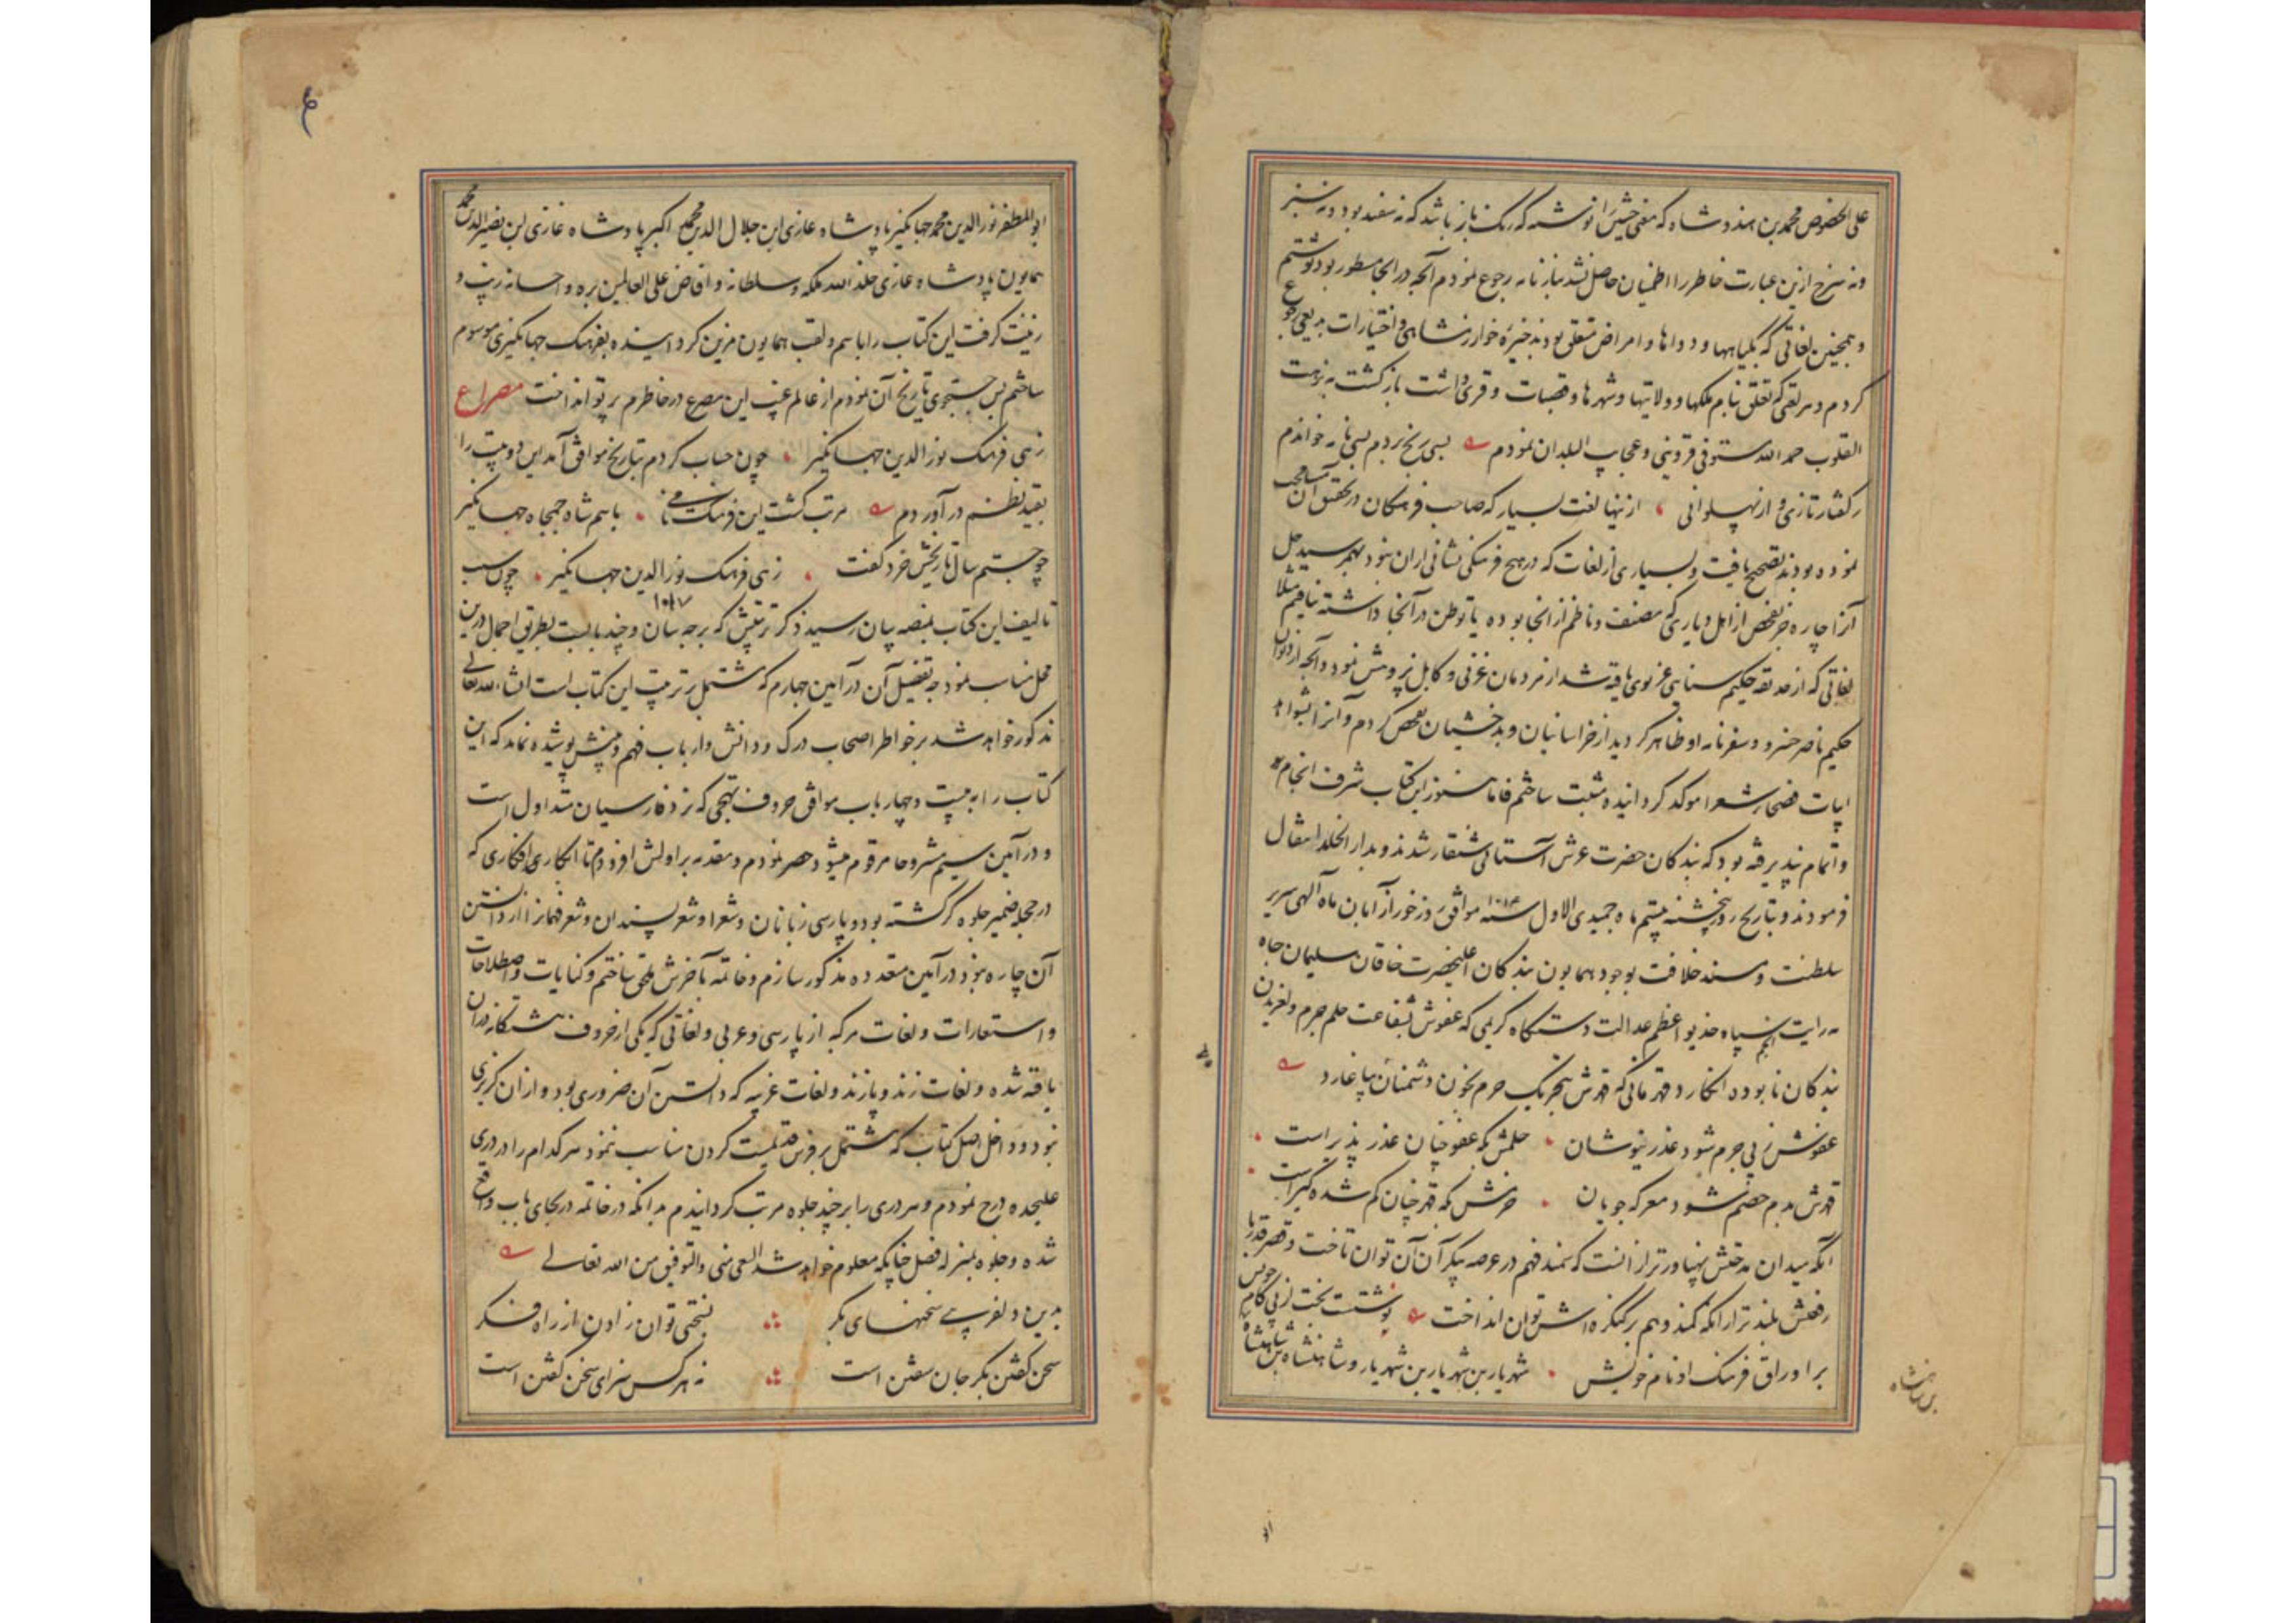 علی الخصوص محمد بن هندوشاه که معنی خشین را نوشته که رنک باز باشد که نه سفید بود و نه سبز
و نه سرخ ازین عبارت خاطر را اطمینان حاصل نشد بباز نامه رجوع نمودم آنچه در انجا مسطور بود نوشتم
و همچنین لغاتی که بکیاهها و دواها و امراض متعلق بود بذخیره خوارزمشاهی و اختیارات بدیعی رجوع
کردم و هر لغتی که تعلق بنام ملکها و ولایتها و شهرها و قصبات و قری داشت بازکشت به نزهت
القلوب حمد الله مستوفی قزوینی و عجایب البلدان نمودم بسی رنج بردم بسی نامه خواندم
ز کفتار تازی و از پهلوانی ازینها لغت بسیار که صاحب فرهنکان در تحقیق آن
نموده بودند تصحیح یافت و بسیاری از لغات که در هیچ فرهنکی نشانی از ان نبود بهم رسید حل
آنرا چاره جز تفحص از اهل دیاری که مصنف و ناظم از انجا بوده یا توطن در آنجا داشته نیافتم مثلا
لغاتی که از حدیقه حکیم سنایی غزنوی یافته شد از مردمان غزنی و کابل پژوهش نمود و آنچه از دیوان
حکیم ناصر خسرو و سفرنامه او ظاهر کردید از خراسانیان و بدخشیان تفحص کردم و آنرا بشواهد
ابیات فصحا و شعرا موکد کردانیده مثبت ساختم فاما هنوز این کتاب شرف انجام
و اتمام نپذیرفته بود که بندکان حضرت عرش آستانی شنقار شدند و بدار الخلد انتقال
فرمودند و بتاریخ روز پنجشنبه بیستم ماه جمیدی الاول سنه ۱۰۱۴ موافق روز خور از آبان ماه آلهی سریر
سلطنت و مسند خلافت بوجود همایون بندکان اعلیحضرت خاقان سلیمان جاه
مه رایت انجم سپاه خدیو اعظم عدالت دستکاه کریمی که عفوش بشفاعت حلم جرم و لغزیدن
بندکان نابوده انکارد و قهرمانی که قهرش بتحریک حزم بخون دشمنان پا غارد
عفوش ز پی جرم شود عذر نیوشان حلمش که عفو چنان عذر پذیر است
قهرش بدم خصم شود معرکه جویان حزمش که قهر چنان کم شده کیر است
آنکه میدان مدحتش پهناورتر از انست که سمند فهم در عرصه پیکر آن توان تاخت و قصر قدر با
رفعتش بلندتر از آنکه کمند وهم بر کنکره اش توان انداخت نوشتت بخت از پی کام
بر اوراق فرهنک او نام خویش شهریار بن شهریار بن شهریار و شاهنشاه بن شاهنشاه
بن شاهنشاه
ابو المظفر نور الدین محمد جهانکیر پادشاه غازی ابن جلال الدین محمد اکبر پادشاه غازی ابن نصیر الدین محمد
همایون پادشاه غازی خلد الله ملکه و سلطانه و افاض علی العالمین بره و احسانه زیب و
زینت کرفت این کتاب را باسم و لقب همایون مزین کردانیده بفرهنک جهانکیری موسوم
ساختم پس جستجوی تاریخ آن نمودم از عالم غیب این مصرع در خاطرم پرتو انداخت مصراع
زهی فرهنک نور الدین جهانکیر چون حساب کردم بتاریخ موافق آمد این دو بیت را
بقید نظم در آوردم مرتب کشت این فرهنک نامی باسم شاه جمجاه جهانکیر
چو جستم سال تاریخش خرد کفت زهی فرهنک نور الدین جهانکیر چون سبب
۱۰۱۷
تالیف این کتاب بمنصه بیان رسید ذکر ترتیبش که بر چه سان و چند بابست بطریق اجمال درین
محل مناسب نمود چه تفصیل آن در آیین چهارم که مشتمل بر ترتیب این کتاب است انشاء الله تعالی
مذکور خواهد شد بر خواطر اصحاب درک و دانش و ارباب فهم و بینش پوشیده نماند که این
کتاب را به بیست و چهار باب موافق حروف تهجی که نزد فارسیان متداول است
و در آیین سیم مشروحا مرقوم میشود حصر نمودم و مقدمه بر اولش افزودم تا ابکاری افکاری که
در حجله ضمیر جلوه کر کشته بود و پارسی زبانان و شعرا و شعر پسندان و شعر فهمانرا از دانستن
آن چاره نبود در آیین متعدده مذکور سازم و خاتمه بآخرش ملحق ساختم و کنایات و اصطلاحات
و استعارات و لغات مرکبه از پارسی و عربی و لغاتی که یکی از حروف هشتکانه دران
یافته شده و لغات زند و پازند و لغات غریبه که دانستن آن ضروری بود و از ان کزیری
نبود و داخل اصل کتاب که مشتمل بر فرس قدیمست کردن مناسب ننمود هر کدام را در دری
علیحده درج نمودم و هر دری را بر چند جلوه مرتب کردانیدم بدانکه در خاتمه در بجای باب واقع
شده و جلوه بمنزله فصل چنانکه معلوم خواهد شد السعی منی والتوفیق من الله تعالی
بدین دلفریبی سخنهای بکر بسختی توان زادن از راه فکر
سخن کفتن بکر جان سفتن است نه هر کس سزای سخن کفتن است